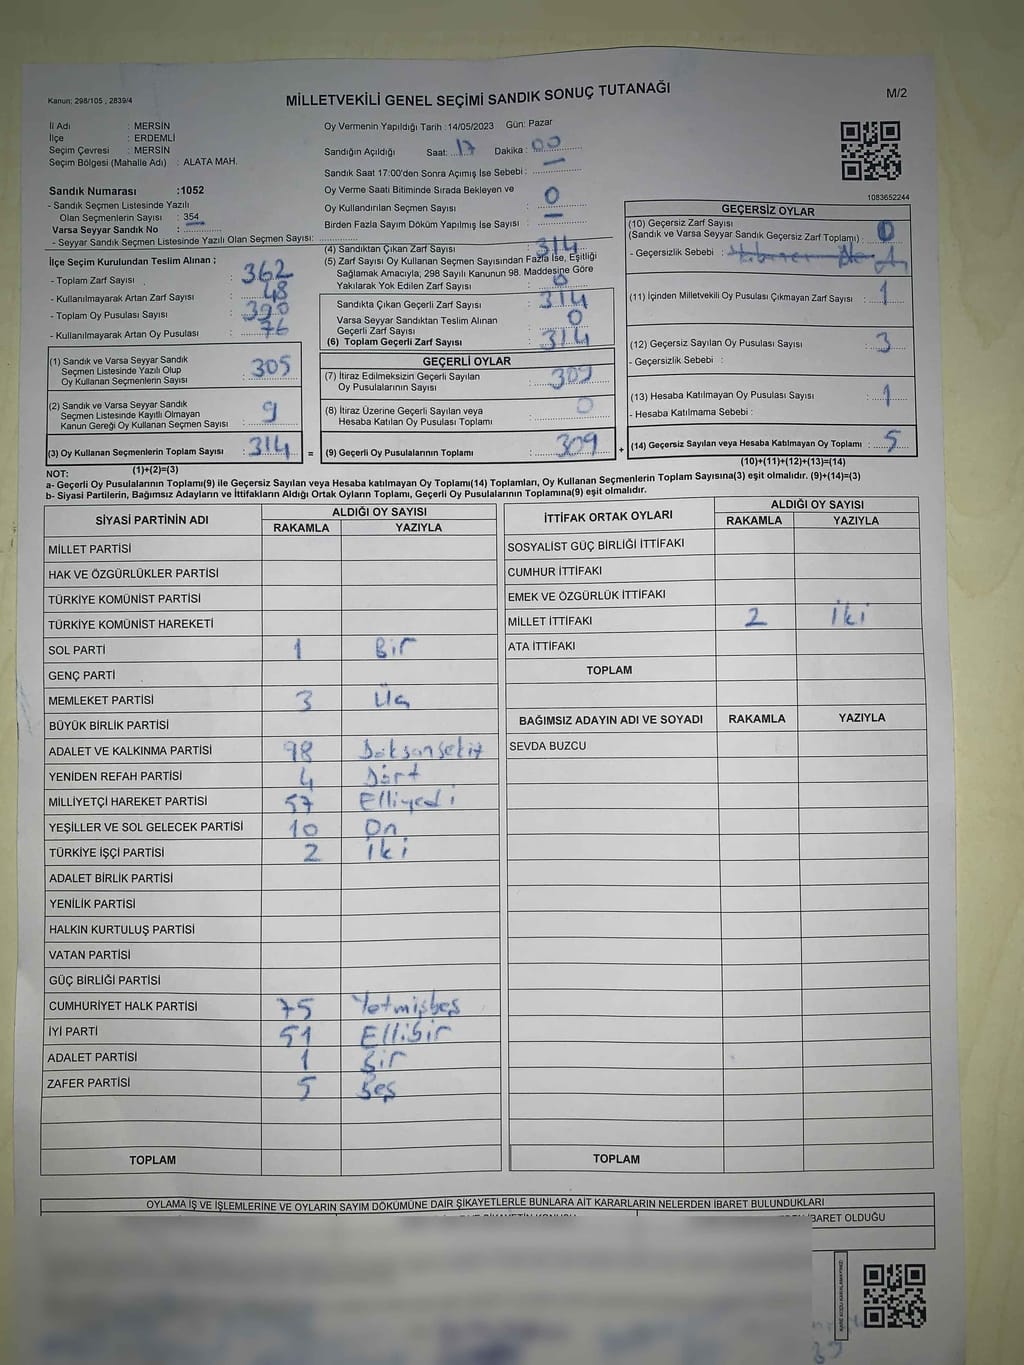 Kanun; 298/105 , 2839/4
MİLLETVEKİLİ GENEL SEÇİMİ SANDIK SONUÇ TUTANAĞI
M/2
İl Adı : MERSİN
İlçe : ERDEMLİ
Seçim Çevresi : MERSİN
Seçim Bölgesi (Mahalle Adı) : ALATA MAH.
Sandık Numarası :1052
- Sandık Seçmen Listesinde Yazılı
Olan Seçmenlerin Sayısı : 354
Varsa Seyyar Sandık No :
- Seyyar Sandık Seçmen Listesinde Yazılı Olan Seçmen Sayısı:
Oy Vermenin Yapıldığı Tarih :14/05/2023 Gün: Pazar
Sandığın Açıldığı Saat: 17 Dakika : 00
Sandık Saat 17:00'den Sonra Açımış İse Sebebi :
Oy Verme Saati Bitiminde Sırada Bekleyen ve
Oy Kullandırılan Seçmen Sayısı : 0
Birden Fazla Sayım Döküm Yapılmış İse Sayısı :
1083652244
İlçe Seçim Kurulundan Teslim Alınan ;
- Toplam Zarf Sayısı : 362
- Kullanılmayarak Artan Zarf Sayısı : 48
- Toplam Oy Pusulası Sayısı : 390
- Kullanılmayarak Artan Oy Pusulası : 76
(1) Sandık ve Varsa Seyyar Sandık
Seçmen Listesinde Yazılı Olup
Oy Kullanan Seçmenlerin Sayısı : 305
(2) Sandık ve Varsa Seyyar Sandık
Seçmen Listesinde Kayıtlı Olmayan
Kanun Gereği Oy Kullanan Seçmen Sayısı : 9
(3) Oy Kullanan Seçmenlerin Toplam Sayısı : 314 =
(1)+(2)=(3)
(4) Sandıktan Çıkan Zarf Sayısı : 314
(5) Zarf Sayısı Oy Kullanan Seçmen Sayısından Fazla İse, Eşitliği
Sağlamak Amacıyla, 298 Sayılı Kanunun 98. Maddesine Göre
Yakılarak Yok Edilen Zarf Sayısı : 0
Sandıkta Çıkan Geçerli Zarf Sayısı : 314
Varsa Seyyar Sandıktan Teslim Alınan
Geçerli Zarf Sayısı : 0
(6) Toplam Geçerli Zarf Sayısı : 314
GEÇERLİ OYLAR
(7) İtiraz Edilmeksizin Geçerli Sayılan
Oy Pusulalarının Sayısı : 309
(8) İtiraz Üzerine Geçerli Sayılan veya
Hesaba Katılan Oy Pusulası Toplamı : 0
(9) Geçerli Oy Pusulalarının Toplamı : 309 +
GEÇERSİZ OYLAR
(10) Geçersiz Zarf Sayısı
(Sandık ve Varsa Seyyar Sandık Geçersiz Zarf Toplamı) : 0
- Geçersizlik Sebebi :
(11) İçinden Milletvekili Oy Pusulası Çıkmayan Zarf Sayısı : 1
(12) Geçersiz Sayılan Oy Pusulası Sayısı : 3
- Geçersizlik Sebebi :
(13) Hesaba Katılmayan Oy Pusulası Sayısı : 1
- Hesaba Katılmama Sebebi :
(14) Geçersiz Sayılan veya Hesaba Katılmayan Oy Toplamı : 5
(10)+(11)+(12)+(13)=(14)
NOT:
a- Geçerli Oy Pusulalarının Toplamı(9) ile Geçersiz Sayılan veya Hesaba katılmayan Oy Toplamı(14) Toplamları, Oy Kullanan Seçmenlerin Toplam Sayısına(3) eşit olmalıdır. (9)+(14)=(3)
b- Siyasi Partilerin, Bağımsız Adayların ve İttifakların Aldığı Ortak Oyların Toplamı, Geçerli Oy Pusulalarının Toplamına(9) eşit olmalıdır.
SİYASİ PARTİNİN ADI ALDIĞI OY SAYISI
RAKAMLA YAZIYLA
MİLLET PARTİSİ
HAK VE ÖZGÜRLÜKLER PARTİSİ
TÜRKİYE KOMÜNİST PARTİSİ
TÜRKİYE KOMÜNİST HAREKETİ
SOL PARTİ 1 Bir
GENÇ PARTİ
MEMLEKET PARTİSİ 3 Üç
BÜYÜK BİRLİK PARTİSİ
ADALET VE KALKINMA PARTİSİ 98 Doksansekiz
YENİDEN REFAH PARTİSİ 4 Dört
MİLLİYETÇİ HAREKET PARTİSİ 57 Elliyedi
YEŞİLLER VE SOL GELECEK PARTİSİ 10 On
TÜRKİYE İŞÇİ PARTİSİ 2 İki
ADALET BİRLİK PARTİSİ
YENİLİK PARTİSİ
HALKIN KURTULUŞ PARTİSİ
VATAN PARTİSİ
GÜÇ BİRLİĞİ PARTİSİ
CUMHURİYET HALK PARTİSİ 75 Yetmişbeş
İYİ PARTİ 51 Ellibir
ADALET PARTİSİ 1 Bir
ZAFER PARTİSİ 5 Beş
TOPLAM
İTTİFAK ORTAK OYLARI ALDIĞI OY SAYISI
RAKAMLA YAZIYLA
SOSYALİST GÜÇ BİRLİĞİ İTTİFAKI
CUMHUR İTTİFAKI
EMEK VE ÖZGÜRLÜK İTTİFAKI
MİLLET İTTİFAKI 2 İki
ATA İTTİFAKI
TOPLAM
BAĞIMSIZ ADAYIN ADI VE SOYADI RAKAMLA YAZIYLA
SEVDA BUZCU
TOPLAM
OYLAMA İŞ VE İŞLEMLERİNE VE OYLARIN SAYIM DÖKÜMÜNE DAİR ŞİKAYETLERLE BUNLARA AİT KARARLARIN NELERDEN İBARET BULUNDUKLARI
BARET OLDUĞU